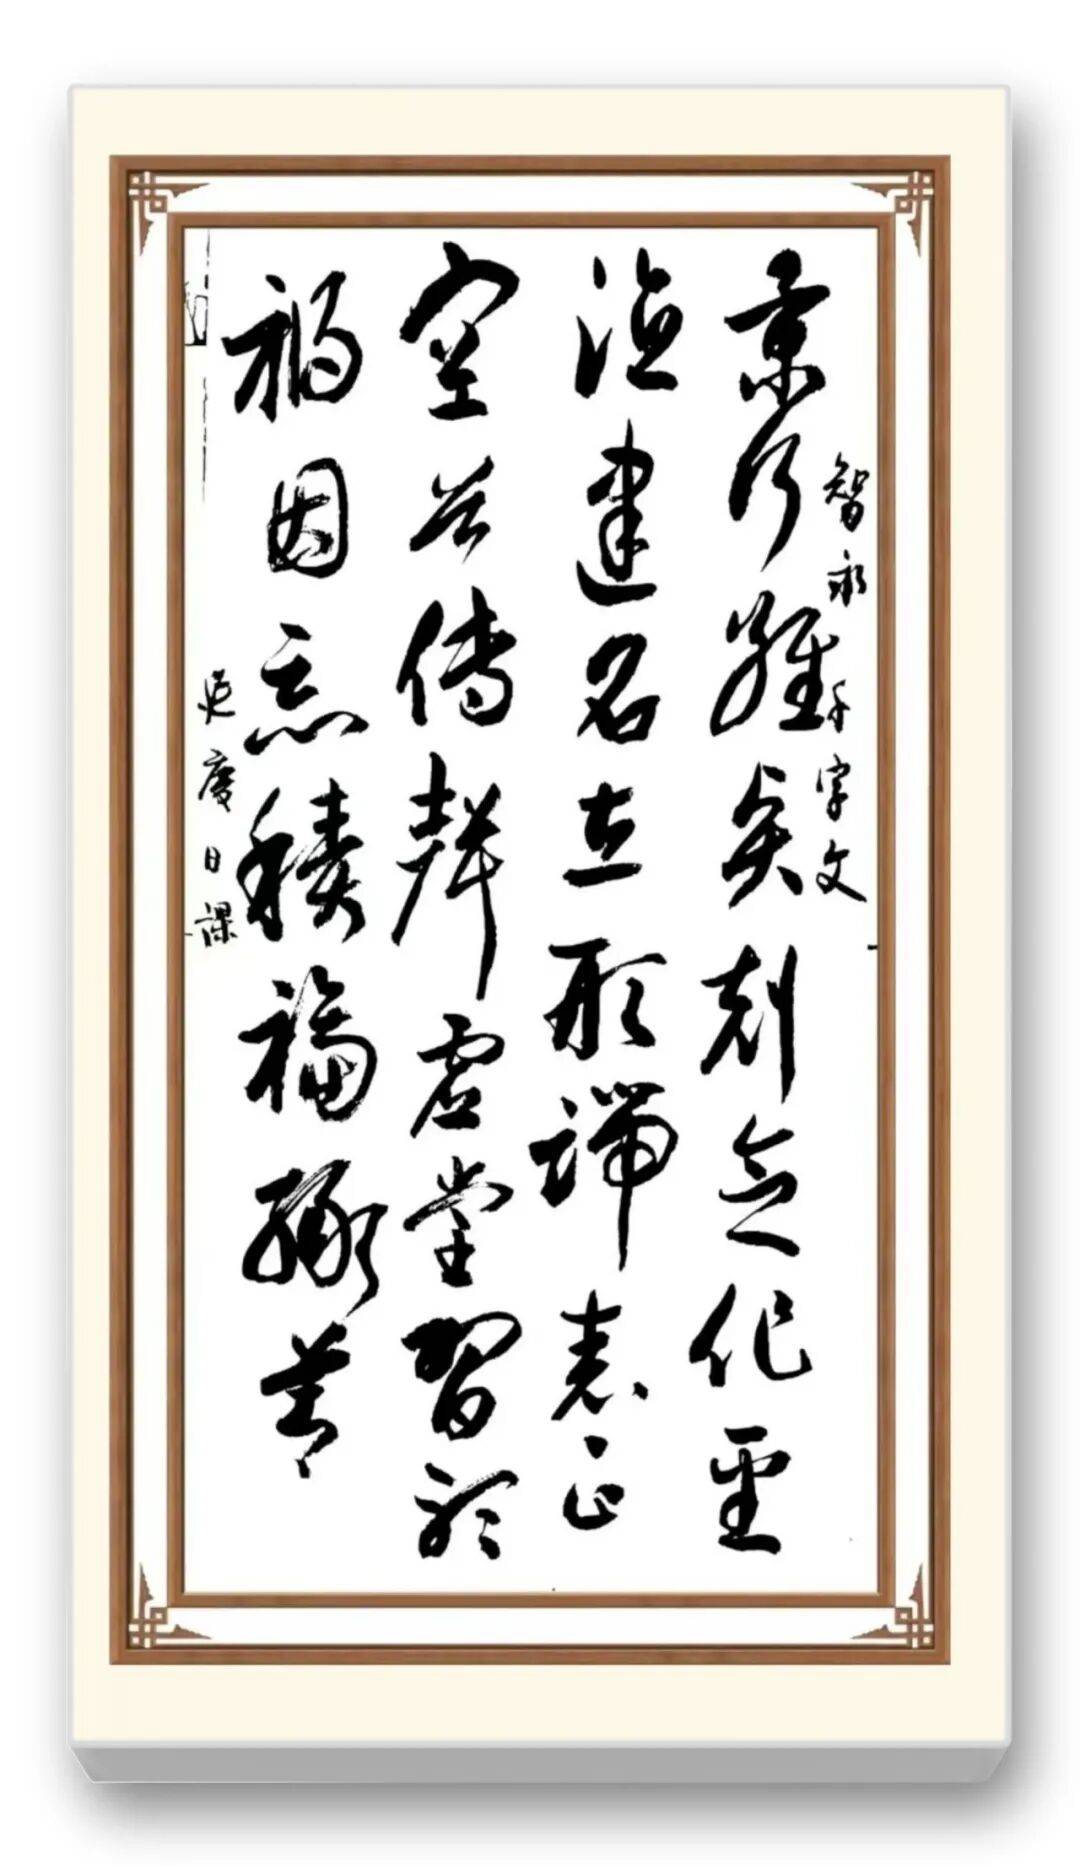 智永千字文
景行維賢剋念作聖
德建名立形端表正
空谷傳聲虛堂習聽
禍因惡積福緣善
日課